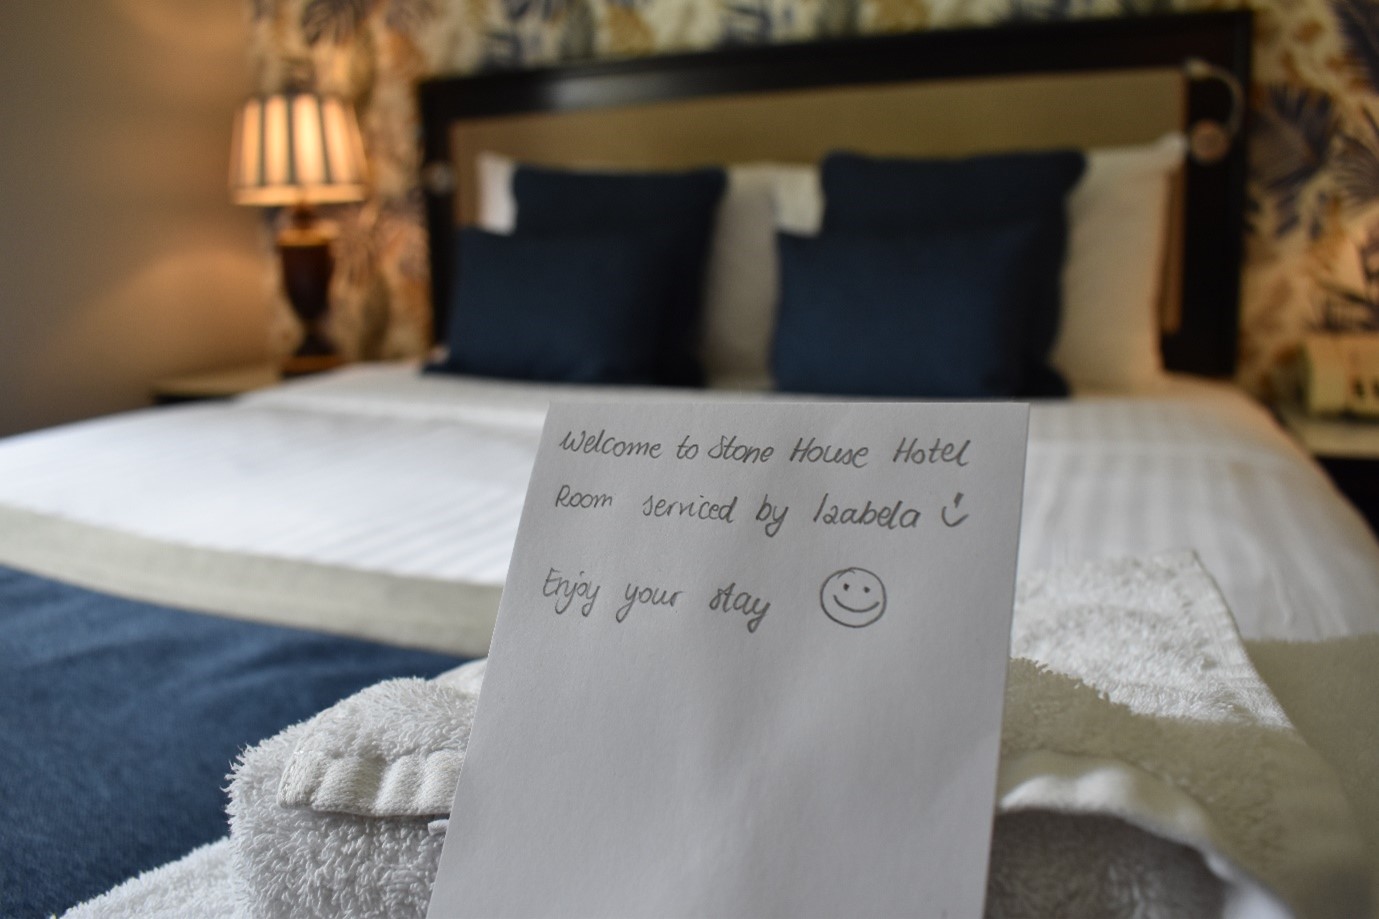 Welcome to Stone House Hotel
Room serviced by Izabela
Enjoy your stay